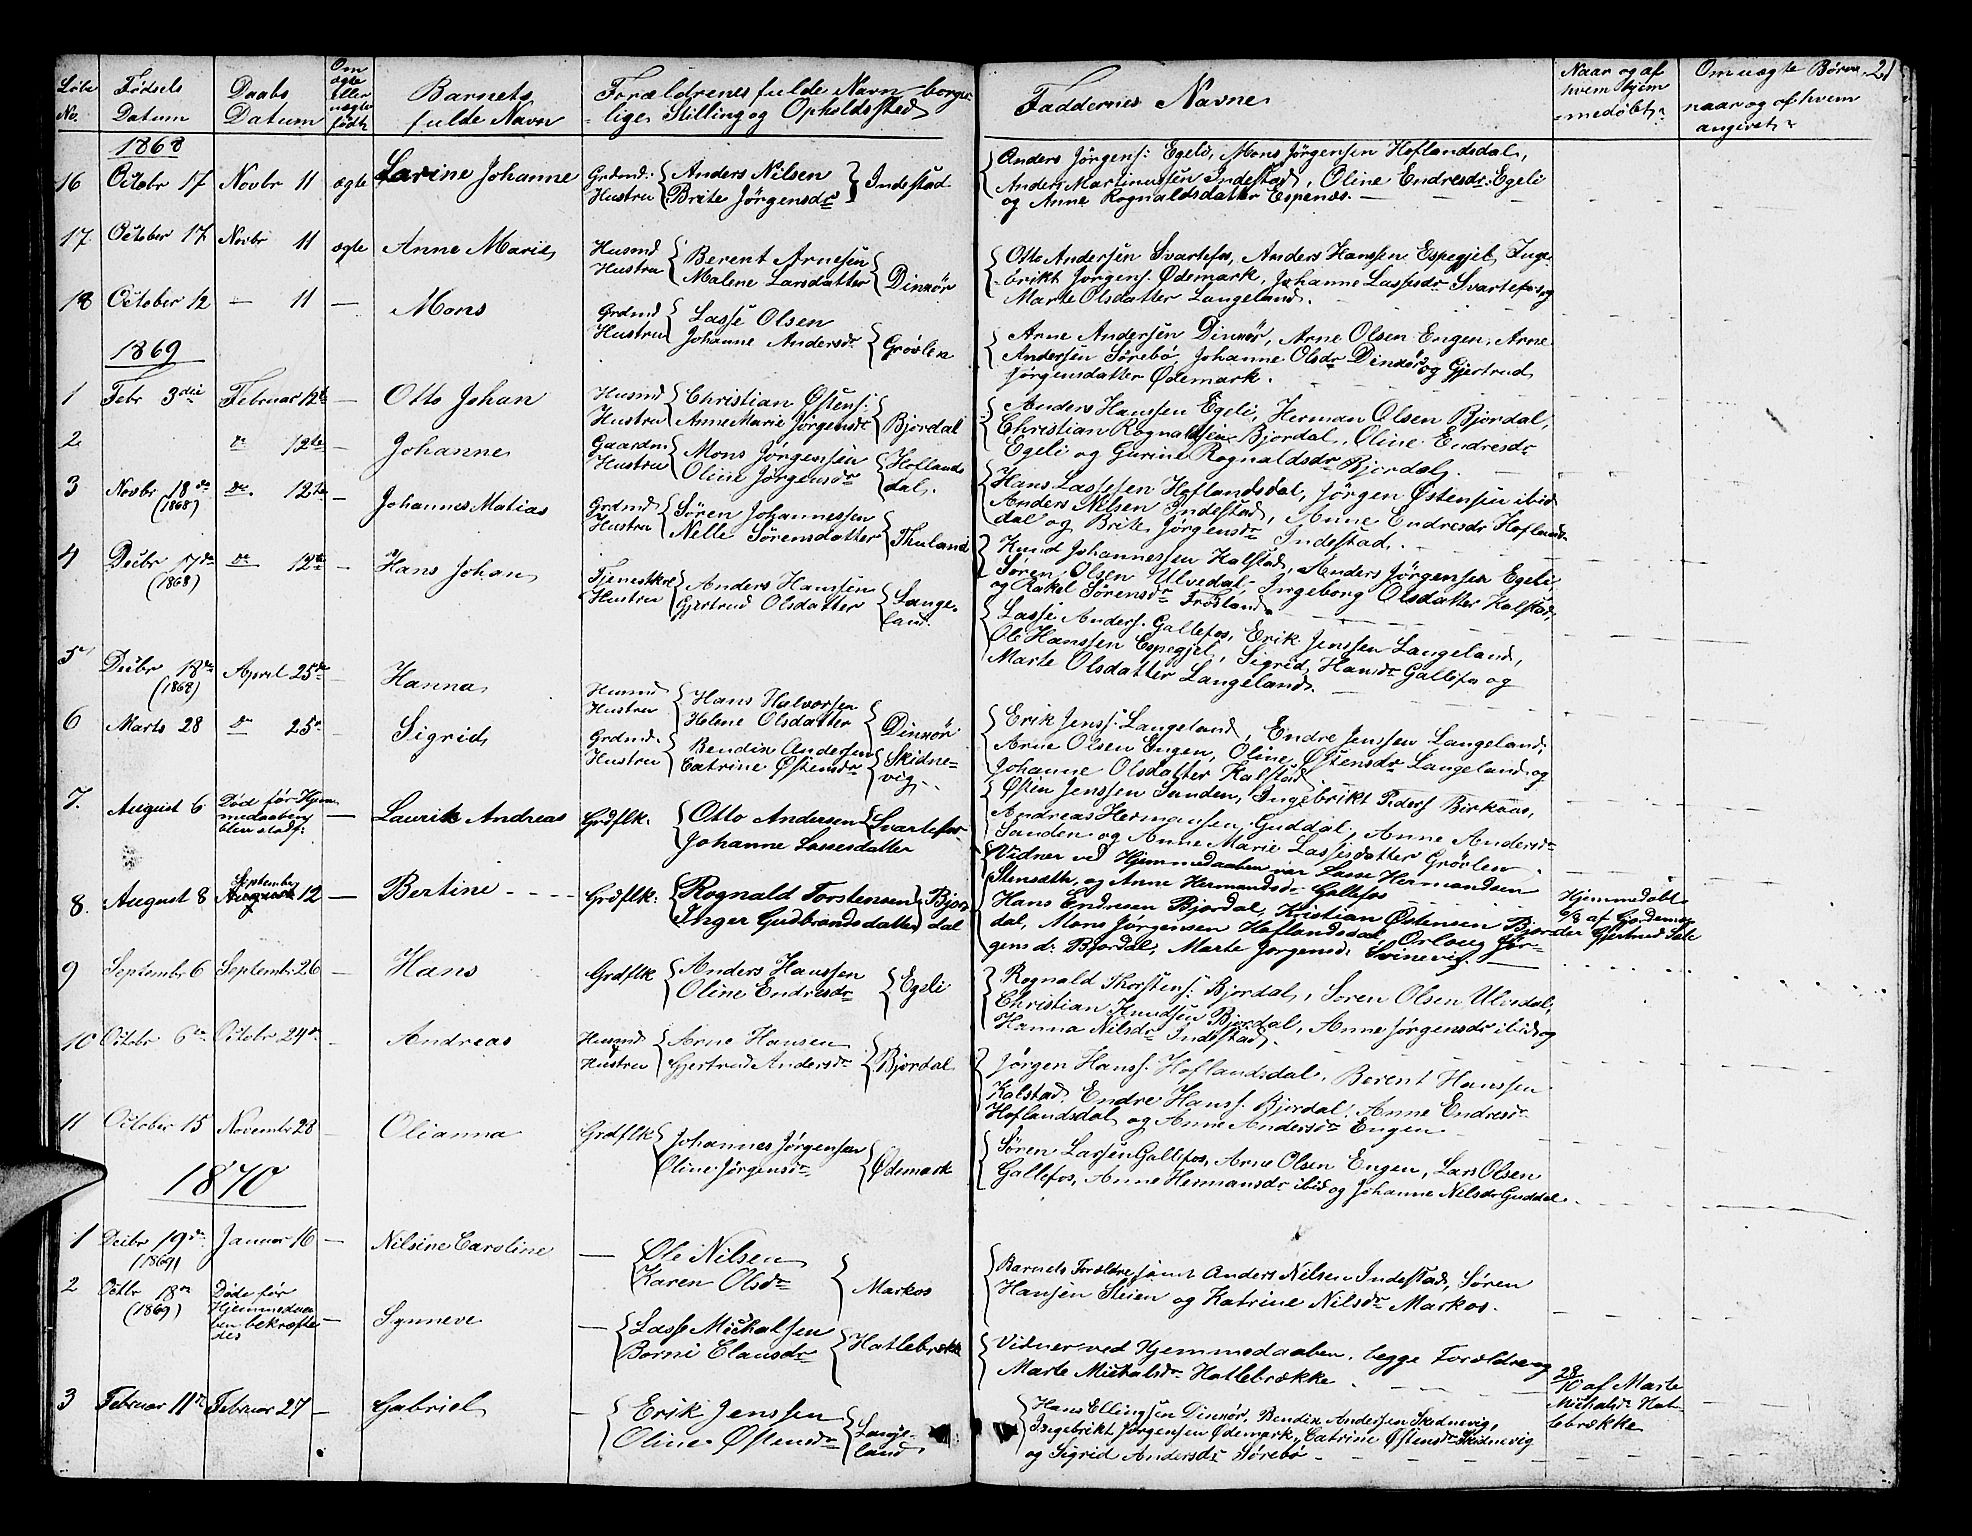 Løbe No. | Fødsels Datum | Daabs Datum | Om ægte eller uægte født | Barnets fulde Navn | Forældrenes fulde Navn borgerlige Stilling og Opholdssted | Faddernes Navne | Naar og af hvem hjemmedøbt | Om uægte Børn naar og af hvem angivet | 21
1868
16 Octobr 17 Novbr 11 ægte Larine Johanne Grdmd: Hustru Anders Nilsen Brite Jørgensdr Indestad
Anders Jørgens: Egeli, Mons Jørgensen Hoflandsdal,
Anders Martinussen Indestad, Oline Endresdr Egeli
og Anne Rognaldsdatter Espenæs.
17 October 17 Novbr 11 ægte Anne Marie Husmd Hustru Berent Arnesen Malene Larsdatter Dinnør
Otto Andersen Svartefos, Anders Hanssen Espegjel, Inge-
brikt Jørgens. Ødemark, Johanne Lassesdr Svartefos og
Marte Olsdatter Langeland.
18 October 12 – 11 — Mons Grdmd Hustru Lasse Olsen Johanne Andersdr Grøvlen
Arne Andersen Dinnør, Arne Olsen Engen, Arne
Andersen Sørebø, Johanne Olsdr Dinnør og Gjertrud
Jørgensdatter Ødemark.
1869
1 Febr 3die Februar 12te – Otto Johan Husmd Hustru Christian Østens: Anne Marie Jørgensdr Bjordal
Anders Hanssen Egeli, Herman Olsen Bjordal,
Christian Rognaldsen Bjordal, Oline Endresdr
Egeli og Gurine Rognaldsdr Bjordal.
2 do 12te – Johanne Gaardm Hustru Mons Jørgensen Oline Jørgensdr Hoflandsdal.
Hans Lassesen Hoflandsdal, Jørgen Østensen ibid
Anders Nilsen Indestad, Anne Endresdr Hoflands-
dal og Brite Jørgensdr Indestad.
3 Novbr 18de (1868) do. 12te – Johannes Matias Grdmd Hustru Søren Johannessen Nelle Sørensdatter Thuland
Knud Johannessen Kalstad, Anders Jørgensen Egeli,
Søren Olsen Ulvedal, Ingeborg Olsdatter Kalstad,
og Rakel Sørensdr Frøsland.
4 Decbr 17de (1868) do 12te – Hans Johan Tjenestkrl Hustru Anders Hanssen Gjertrud Olsdatter Langeland.
Lasse Anders. Gallefos, Erik Jenssen Langeland,
Ole Hanssen Espegjel, Sigrid Hansdr Gallefos og
Marte Olsdatter Langeland.
5 Decbr 18de (1868) April 25de – Hanna Husmd Hustru Hans Halvorsen Helene Olsdatter Dinnør
Erik Jenss. Langeland, Endre Jenssen Langeland,
Arne Olsen Engen, Oline Østensdr Langeland og
Johanne Olsdatter Kalstad.
6 Marts 28 do 25de Sigrid Grdmd. Hustru Bendix Andersen Catrine Østensdr Skidnevig.
Østen Jenssen Sanden, Ingebrikt Peders Birknæs,
Andreas Hermansen Guddal, Anne Andersdr
Sanden og Anne Marie Lassesdatter Grøvlen
7. August 6 Død før Hjemmedaaben blev stadf: — Laurits Andreas Grdflk: Otto Andersen Johanne Lassesdatter Svartefos
Vidner ved Hjemmedaaben var Lasse Hermandsen
Stensæth, og Anne Hermandsd: Gallefos
Hjemmedøbt 6/8 af Gordemoder Gjertrud Sæle
8. August 8 September 12 — Bertine Grdflk: Rognald Torstensen Inger Gudbrandsdatter Bjordal
Hans Endresen Bjordal, Kristian Østensen Bjor-
dal, Mons Jørgensen Hoflandsdal Orloug Jør-
gensd: Bjordal, Marte Jorgensd: Svinevig.
9 Septembr 6 Septembr 26 – Hans Grdflk Anders Hanssen Oline Endresdr Egeli
Rognald Thorstens. Bjordal, Søren Olsen Ulvedal,
Christian Knudsen Bjordal, Anne Jørgensdr ibid og
Hanna Nilsdr Indestad.
10 Octobr 6te Octobr 24de – Andreas Husmd Hustru Arne Hansen Gjertrud Andersdr Bjordal
Jørgen Hanss. Hoflandsdal, Berent Hanssen
Kalstad, Endre Hanss. Bjordal, Anne Endresdr
Hoflandsdal og Anne Andersdr Engen
11 October 15 Novembr 28 – Olianna Grdflk Johannes Jørgensen Oline Jørgensdr Ødemark
Søren Larsen Gallefos, Arne Olsen Engen, Lars Olsen
Gallefos, Anne Hermansdr ibid og Johanne Nilsdr Guddal
1870
1 Decbr 19de (1869) Januar 16 – Nilsine Caroline — Ole Nilsen Karen Olsdr Markos
Barnets Forældre, samt Anders Nilsen Indestad, Søren
Hansen Steien og Katrine Nilsdr Markos.
2 Octbr 18de (1869) Døde før Hjemmedaaben bekræftedes – Synneve — Lasse Michalsen Børni Clausdr Hatlebrække
Vidner ved Hjemmedaaben, begge Forældre og
Marte Michalsdr Hatlebrække
28/10 af Marte Michalsdr Hatlebrække
3 Februar 11te Februar 27 – Gabriel – Erik Jenssen Oline Østensdr Langeland
Hans Ellingsen Dinnør, Bendix Andersen Skidnevig,
Ingebrikt Jørgensen Ødemark, Catrine Østensdr Skidnevig
og Sigrid Andersdr Sørebø